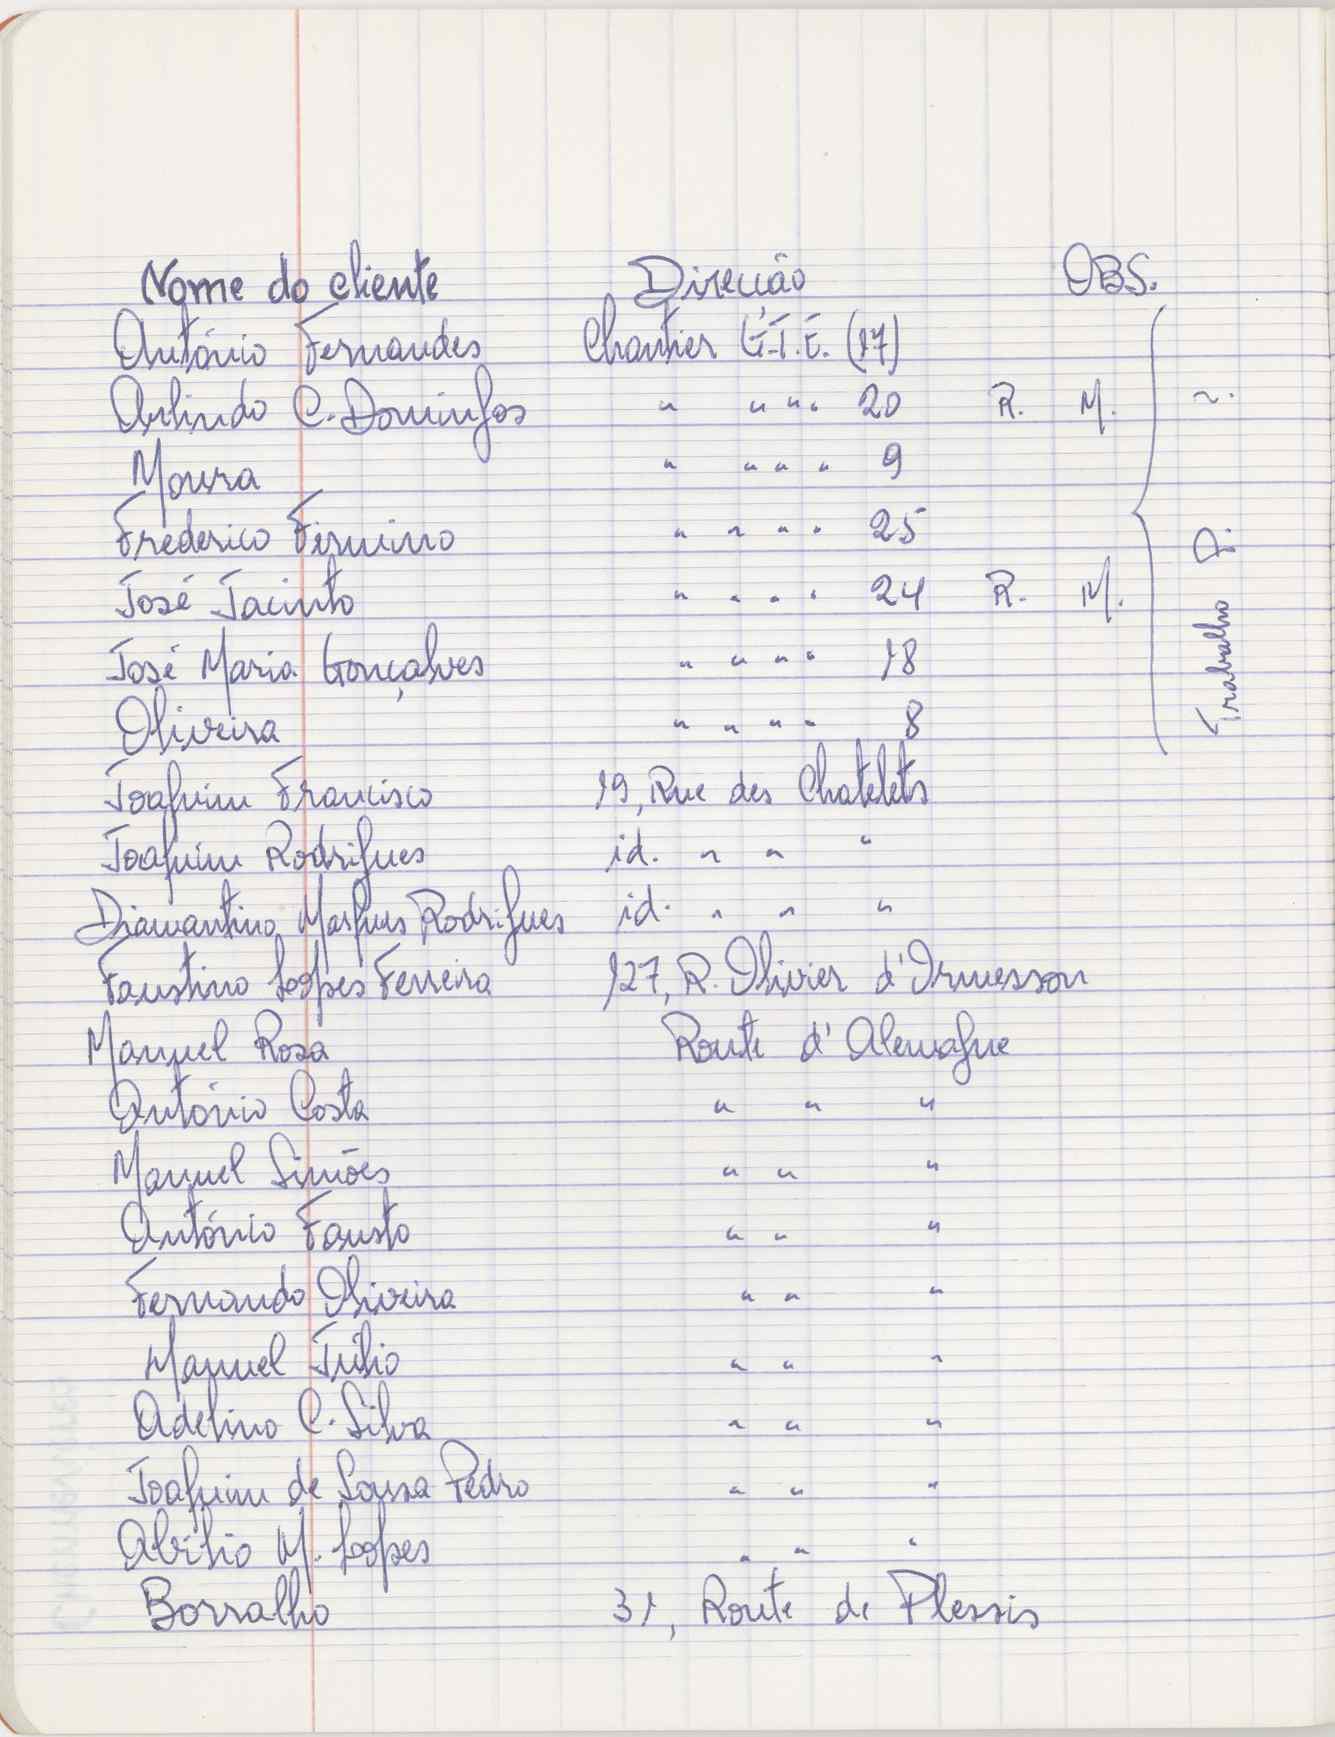 Nome do cliente Direcção OBS.
António Fernandes Chantier G.T.E. (17)
Arlindo C. Domingos " " " " 20 R. M. ".
Moura " " " " 9
Frederico Firmino " " " " 25
José Jacinto " " " " 24 R. M.
José Maria Gonçalves " " " " 18
Oliveira " " " " 8
Trabalho D.
Joaquim Francisco 19, Rue des Chatelets
Joaquim Rodrigues id. " " "
Diamantino Marques Rodrigues id. " " "
Faustino Lopes Ferreira 127, R. Olivier d'Ormesson
Manuel Rosa Route d'Alemagne
António Costa " " "
Manuel Simões " " "
António Fausto " " "
Fernando Oliveira " " "
Manuel Júlio " " "
Adelino C. Silva " " "
Joaquim de Sousa Pedro " " "
Abílio M. Lopes " " "
Borralho 31, Route de Plessis